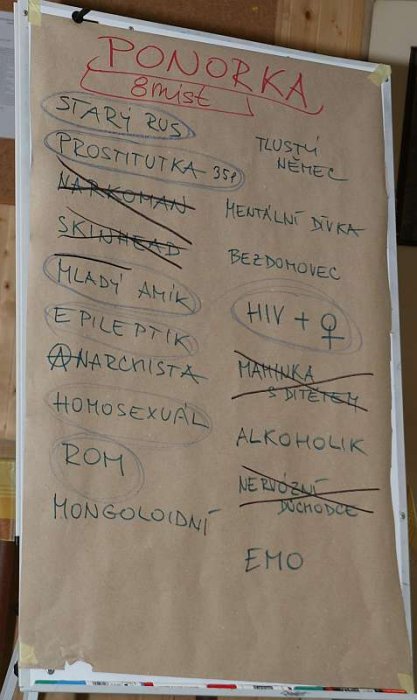 PONORKA
8 míst
STARÝ RUS
PROSTITUTKA 35 let
NARKOMAN
SKINHEAD
MLADÝ AMÍK
EPILEPTIK
ANARCHISTA
HOMOSEXUÁL
ROM
MONGOLOIDNÍ
TLUSTÝ
NĚMEC
MENTÁLNÍ DÍVKA
BEZDOMOVEC
HIV + ♀
MAMINKA
S DÍTĚTEM
ALKOHOLIK
NERVÓZNÍ
DŮCHODCE
EMO